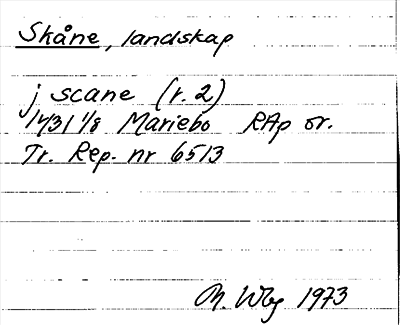 Skåne, landskap
j scane (r. 2)
1431 1/8 Mariebo RAp or.
Tr. Rep. nr 6513
M. Wbg 1973